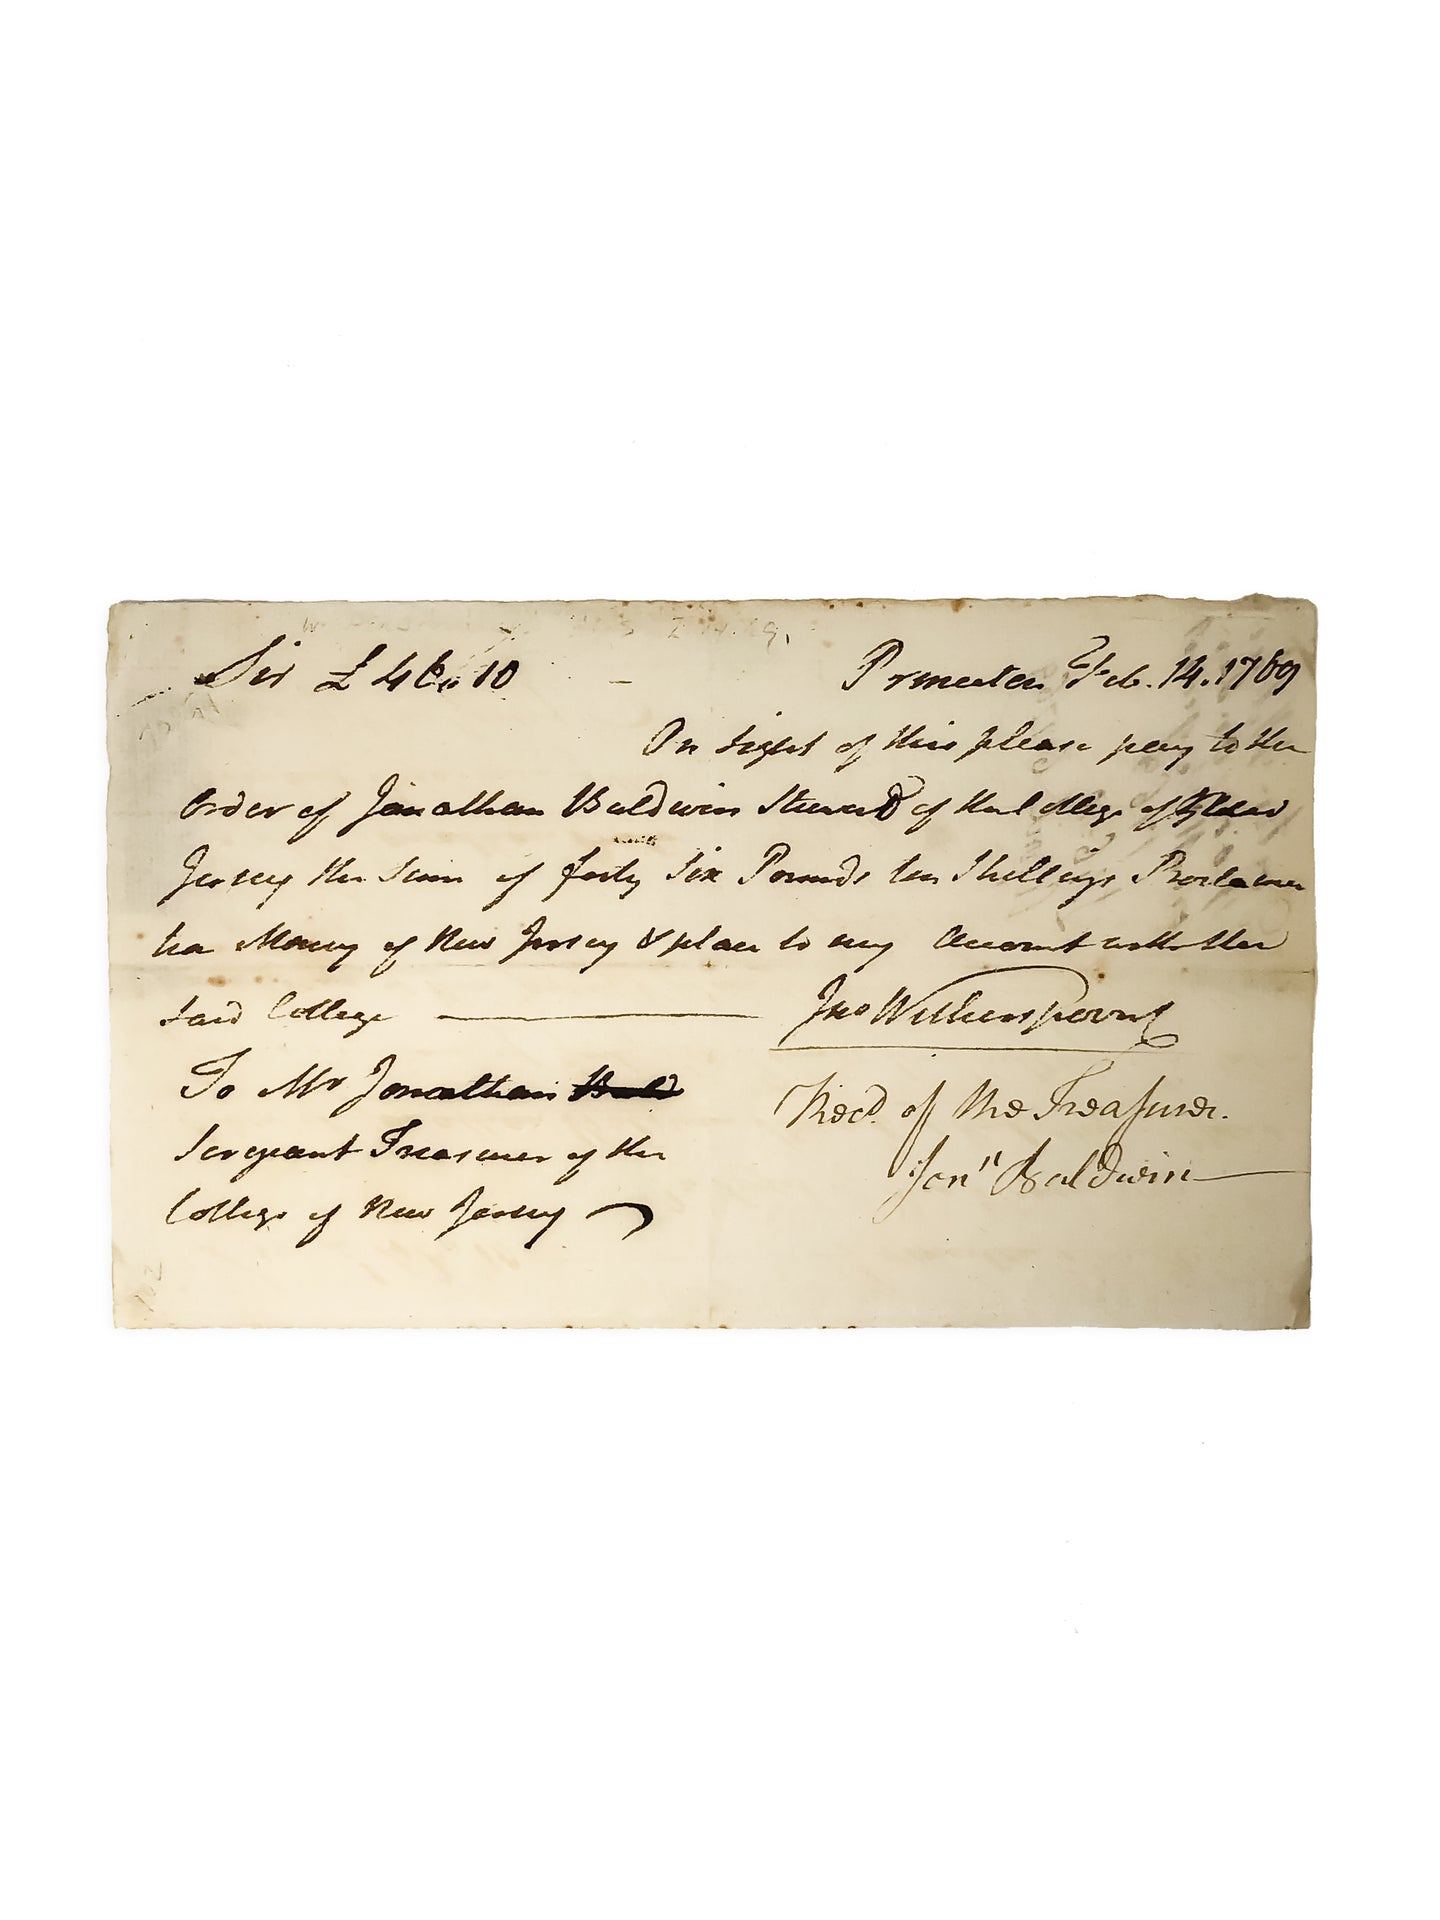 Sir £ 46,, 10 – Princeton Feb. 14. 1769
On sight of this please pay to the
Order of Jonathan Baldwin Steward of the College of New
Jersey the Sum of forty Six Pounds ten Shillings Proclama
tion Money of New Jersey & place to my Account with the
said College
Jno Witherspoon
To Mr Jonathan Bald
Sergeant Treasurer of the
College of New Jersey
Recd. of the Treasurer.
Jonn Baldwin